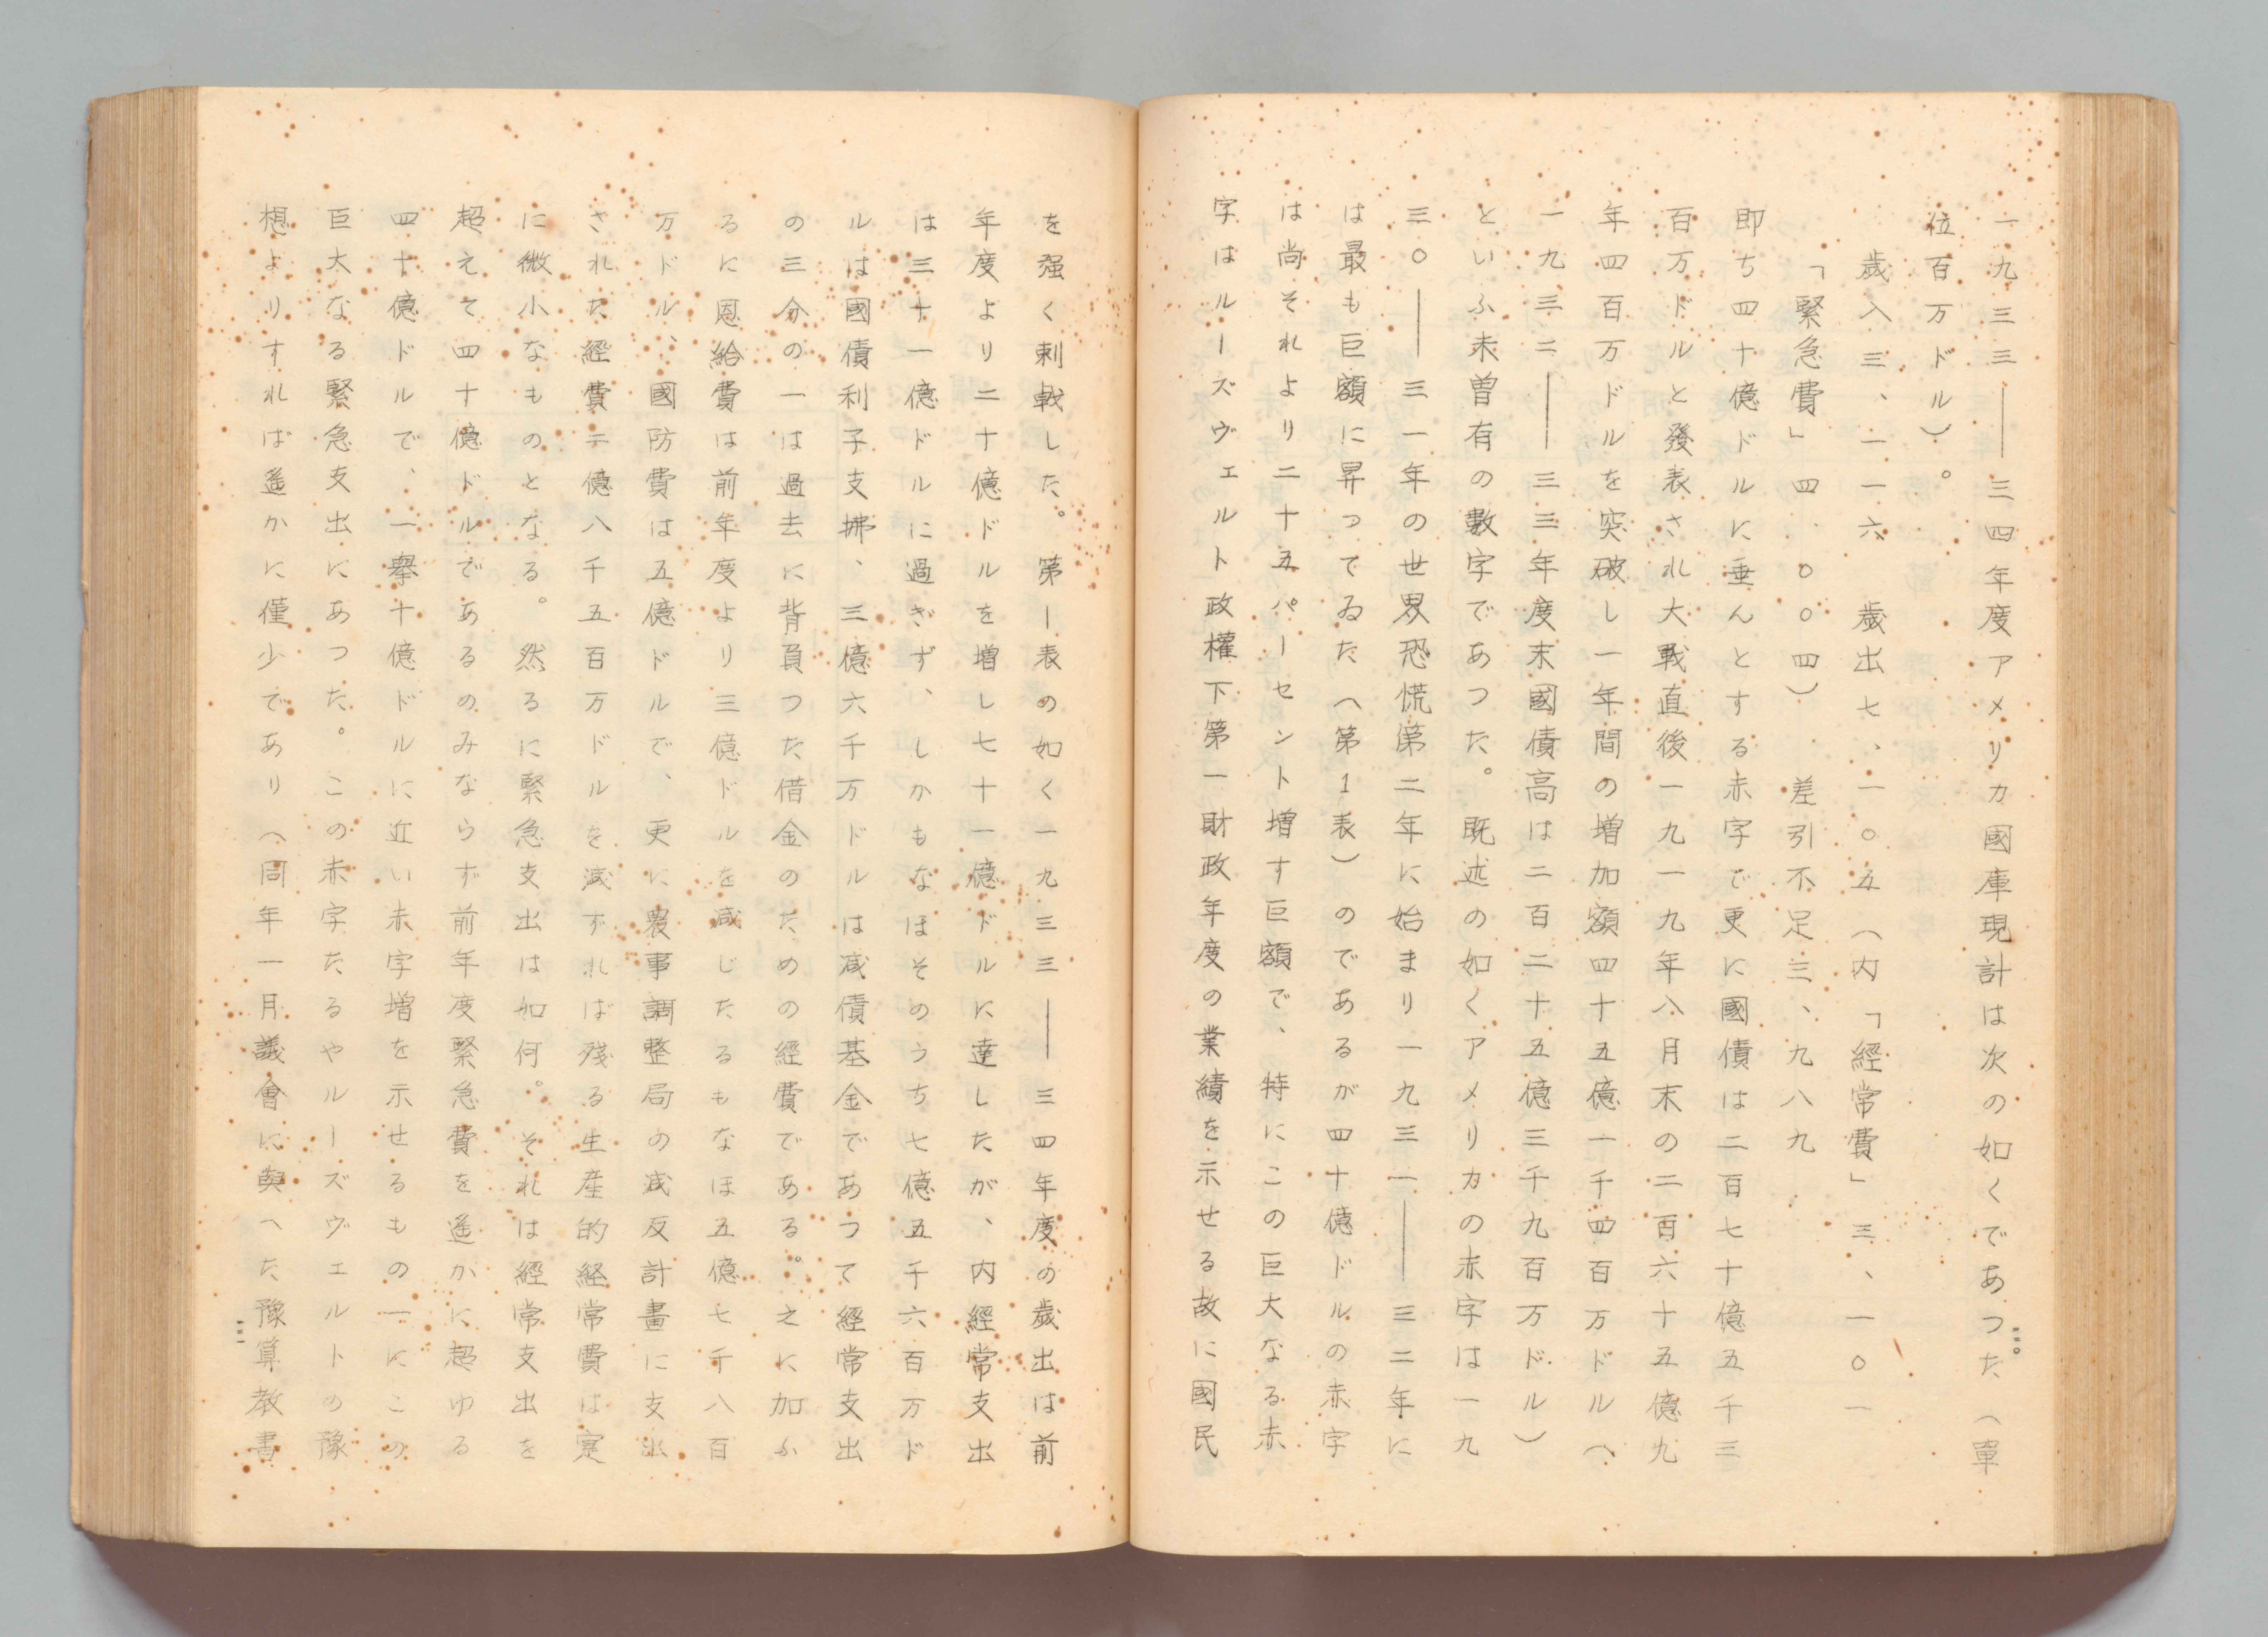 一九三三――三四年度アメリカ國庫現計は次の如くであつた（單
位百万ドル）。
歳入三、一一六　歳出七、一〇五（内「經常費」三、一〇一
「緊急費」四、〇〇四）　差引不足三、九八九
即ち四十億ドルに垂んとする赤字で更に國債は二百七十億五千三
百万ドルと發表され大戰直後一九一九年八月末の二百六十五億九
年四百万ドルを突破し一年間の増加額四十五億一千四百万ドル（
一九三二――三三年度末國債高は二百二十五億三千九百万ドル）
といふ未曽有の數字であつた。既述の如くアメリカの赤字は一九
三〇――三一年の世界恐慌第二年に始まり一九三一――三二年に
は最も巨額に昇つてゐた（第1表）のであるが四十億ドルの赤字
は尚それより二十五パーセント増す巨額で、特にこの巨大なる赤
字はルーズヴェルト政權下第一財政年度の業績を示せる故に國民
を强く刺戟した。第一表の如く一九三三――三四年度の歳出は前
年度より二十億ドルを増し七十一億ドルに達したが、内經常支出
は三十一億ドルに過ぎず、しかもなほそのうち七億五千六百万ド
ルは國債利子支拂、三億六千万ドルは減債基金であつて經常支出
の三分の一は過去に背負つた借金のための經費である。之に加ふ
るに恩給費は前年度より三億ドルを減じたるもなほ五億七千八百
万ドル、國防費は五億ドルで、更に農事調整局の減反計畫に支出
された経費二億八千五百万ドルを減ずれば殘る生産的経常費は寔
に微小なものとなる。然るに緊急支出は如何。それは經常支出を
超えて四十億ドルであるのみならず前年度緊急費を遥かに超ゆる
四十億ドルで、一擧十億ドルに近い赤字増を示せるもの一にこの
巨大なる緊急支出にあつた。この赤字たるやルーズヴェルトの豫
想よりすれば遥かに僅少であり（同年一月議會に與へた豫算教書